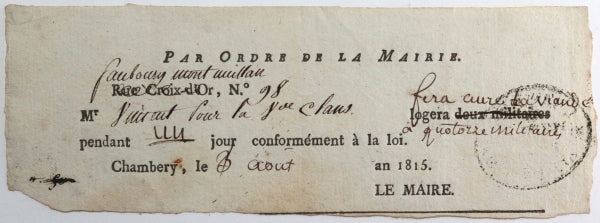 PAR ORDRE DE LA MAIRIE.
faubourg montmeillan
Rue Croix-d'Or, N.° 98
Mr Vincent pour la Vve Clans fera cuire la viande
logera deux militaires
a quatorze militaires
pendant un jour conformément à la loi.
Chambery, le 3 Août an 1815.
LE MAIRE.